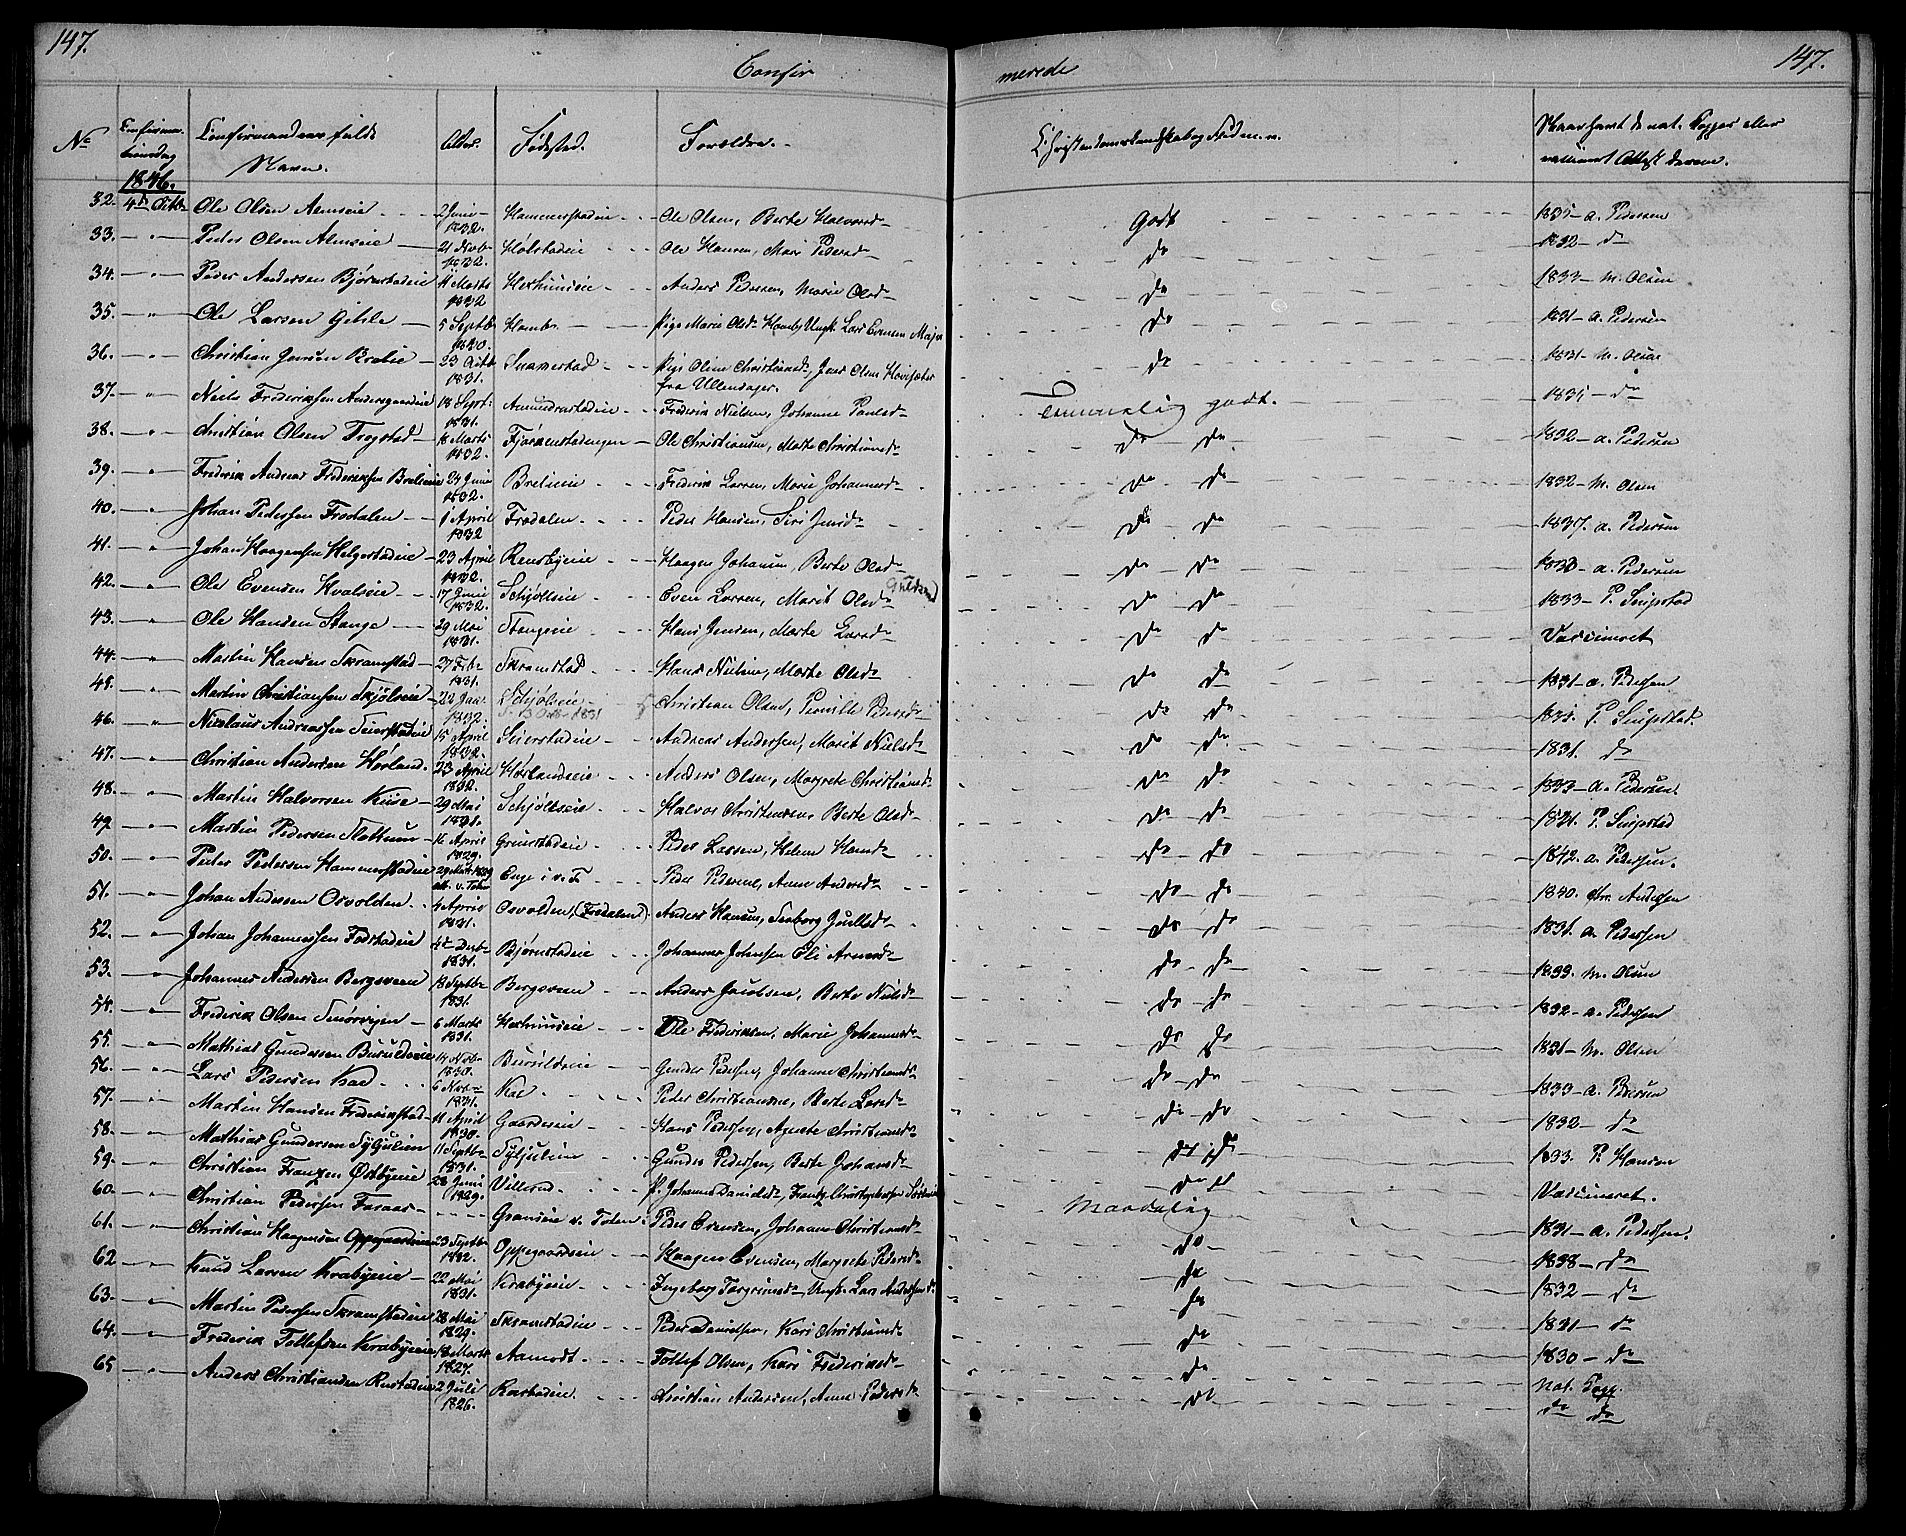 147.
147.
Confir merede
No Confirma- tionsdag Confirmandens fulde Navn. Alder. Fødested. Forældre. Christendomskundskab og Fliid m. v. Naar havt de nat. Kopper eller vaccineret Attest derom.
1846.
32. 4d Octbr Ole Olsen Almseie 2 Juni 1832. Hammerstadeie Ole Olsen, Berte Halvorsdr Godt 1835 - A. Pedersen
33. - " - Peder Olsen Almseie 21 Novbr Holstadeie Ole Hansen, Mari Pedersdr do 1832 - do
34. - " - Peder Andersen Bjørnstadeie 11 Marts 1832 Hexhuuseie Anders Pedersen, Marie Olsdr do 1833 - M. Olsen
35. - " - Ole Larsen Gihle 5 Septbr Hambr Pige Marie Olsdr Hamb, Ungk. Lars Evensen do 1831 - A. Pedersen
36. - " - Christian Jensen 23 Octbr 1831. Snarestad Pige Oline Christiansdr, Jens Olsen fra Ullensager. do 1831 - M. Olsen
37. - " - Niels Frederiksen 18 Septbr 1831. Amundrudeie Frederik Nielsen, Johanne Paulsdr Temmelig godt. do
38. - " - Christian Olsen Trogstad 16 Marts 1832. Fjørkenstadengen Ole Christiansen, Marte Christiansdr do do 1832 - A. Pedersen
39. - " - Frederik Andreas Frederiksen 24 Juni 1832. Frederik Larsen, Marie Johannesdr do do 1832 - M. Olsen
40. - " - Johan Pedersen Frodalen 1 April 1832 Frodalen Peder Hansen, Siri Jensdr do do 1837. A. Pedersen
41. - " - Johan Haagensen Helgestadeie 23 April 1832. Rensbyeie Haagen Johansen, Berte Olsdr do do 1833 - A. Pedersen
42. - " - Ole Evensen Hvalseie 17 Juni 1832. Schjøllseie Even Larsen, Marit Olsdr do do 1833 - P. Seigstad
43. - " - Ole Hansen Stange 29 Mai 1831. Stangeeie Hans Jensen, Marte Larsdr do do Vaccineret
44. - " - Martin Hansen Skramstad 27 Febr 1831. Skramstad Hans Nielsen, Marte Olsdr do do 1831 - A. Pedersen
45. - " - Martin Christiansen Skjølseie 22 Jan. 1832. Schjølseie Christian Olsen, Pernille Pedersdr do do P. Seigstad
46. - " - Nicolaus Andreassen Seierstadeie 15 April 1832. Seierstadeie Andreas Andersen, Marit Nielsdr do do 1831. do
47. - " - Christian Andersen Horland. 23 April 1832. Horlandseie Anders Olsen, Margrete Christiansdr do do 1833 - A. Pedersen
48. - " - Martin Halvorsen Kise 29 Mai 1831. Schjøllseie Halvor Christensen, Berte Olsdr do do 1831. P. Seigstad
49. - " - Martin Pedersen Slettum 16 April 1829. Grimstadeie Peder Larsen, Helene Hansdr do do 1842. A. Pedersen.
50. - " - Peder Pedersen Hammerstadeie 29 Marts 1829 Enge i V. T. Peder Pedersen, Anne Andersdr do do 1840. Chr. Andersen
51. - " - Johan Andersen Osvolden 4 April 1831. Osvolden, (Frodalen) Anders Hansen, Seeborg Gullesdr do do 1831. A. Pedersen
52. - " - Johan Johannessen Fodstadeie 4d Decbr 1831. Bjørnstadeie Johannes Johnsen Eli Arnesdr do do 1833. M. Olsen
53. - " - Johannes Andersen Bergsveen 18 Septbr 1831. Bergsveen Anders Jacobsen, Berte Nielsdr do do 1832 - A. Pedersen
54. - " - Frederik Olsen Smørvigen 6 Marts 1831. Hexhuuseie Ole Frederiksen, Marie Johannesdr do do 1831 - M. Olsen
55. - " - Mathias Gundersen 14 Novbr 1830. Gunder Pedersen, Johanne Christiansdr do do 1833 - A. Pedersen
56. - " - Lars Pedersen Kae 6 Novbr 1831. Kae Peder Christiansen, Berte Larsdr do do 1832 - do
57. - " - Martin Hansen Frederikstad 11 April 1830. Gaardseie Hans Pedersen, Agnete Christiansdr do do 1833. P. Hansen
58. - " - Mathias Gundersen Syljulien 11 Septbr 1831. Syljulien Gunder Pedersen, Berte Johansdr do Vaccineret.
59. - " - Christian Frantzen Østbyeie 28 Juni 1829. Villerud P. Johanne Danielsdr, Frantz Christophersen Maadelig 1831 - A. Pedersen.
60. - " - Christian Pedersen Faraas Granseie V. Toten Peder Evensen, Johanne Christiansdr do 1838 - do
61. - " - Christian Haagensen Oppegaardseie 23 Septbr 1832. Oppegaardseie Haagen Evensen, Margrete Pedersdr do 1832 - do
62 - " - Knud Larsen Krabyeie 22 Mai 1831. Krabyeie Ingeborg Torgrimsdr Ungk. Lars Andersen do 1831 - do
63. - " - Martin Pedersen Skramstadeie 28 Mai 1829. Skramstadeie Peder Danielsen, Kari Christiansdr do 1830 - do
64. - " - Frederik Tollefsen Krabyeie 18 Marts 1827. Aamodt Tollef Olsen, Kari Frederiksdr do Nat. Kopp.
65 - " - Anders Christiansen Rustadeie 2 Juli 1826. Rustadeie Christian Andersen, Anne Pedersdr do do do